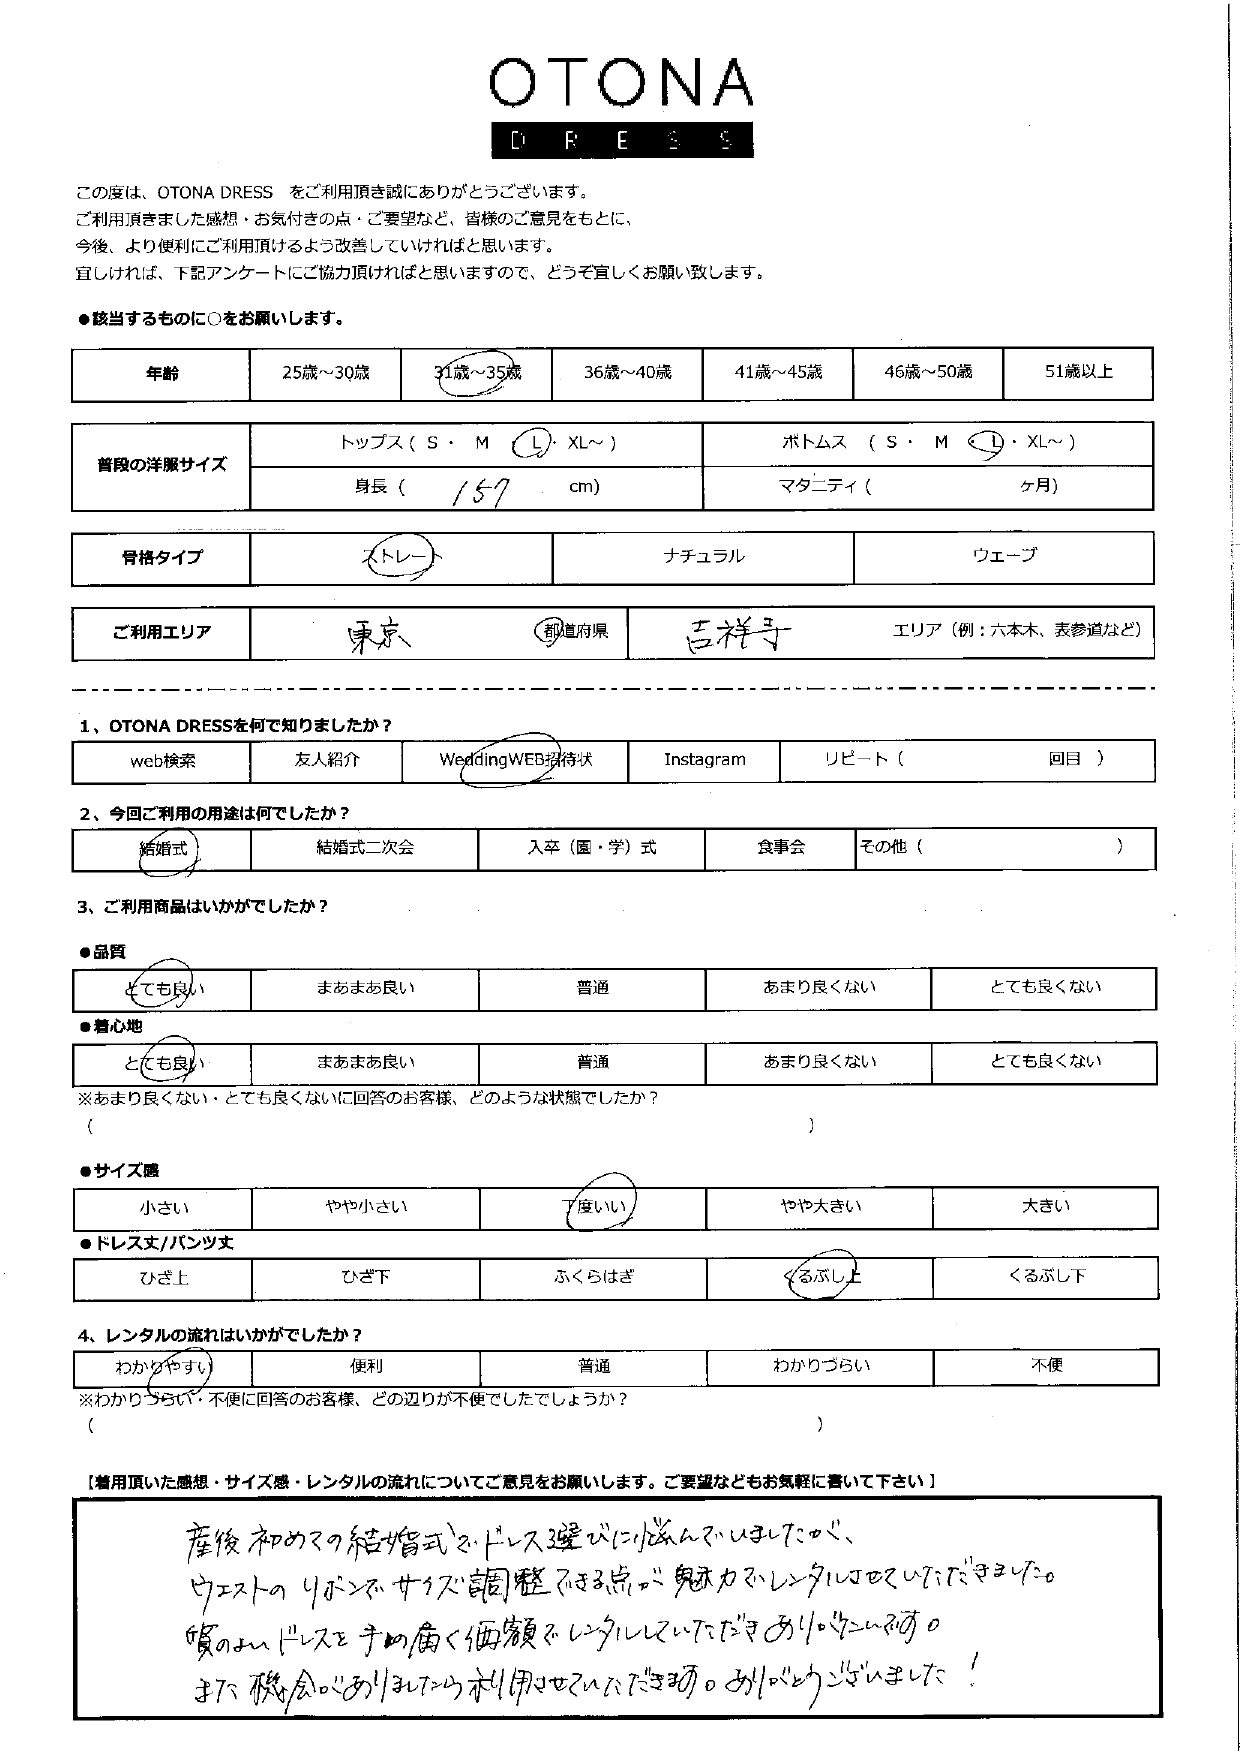 OTONA
DRESS
この度は、OTONA DRESS をご利用頂き誠にありがとうございます。
ご利用頂きました感想・お気付きの点・ご要望など、皆様のご意見をもとに、
今後、より便利にご利用頂けるよう改善していければと思います。
宜しければ、下記アンケートにご協力頂ければと思いますので、どうぞ宜しくお願い致します。
●該当するものに○をお願いします。
年齢 25歳～30歳 31歳～35歳 36歳～40歳 41歳～45歳 46歳～50歳 51歳以上
普段の洋服サイズ トップス ( S ・ M ・ L ・ XL～ ) ボトムス ( S ・ M ・ L ・ XL～ )
身長 ( 157 cm) マタニティ ( ヶ月)
骨格タイプ ストレート ナチュラル ウェーブ
ご利用エリア 東京 都道府県 吉祥寺 エリア（例：六本木、表参道など）
1、OTONA DRESSを何で知りましたか？
web検索 友人紹介 WeddingWEB招待状 Instagram リピート ( 回目 )
2、今回ご利用の用途は何でしたか？
結婚式 結婚式二次会 入卒（園・学）式 食事会 その他 ( )
3、ご利用商品はいかがでしたか？
●品質
とても良い まあまあ良い 普通 あまり良くない とても良くない
●着心地
とても良い まあまあ良い 普通 あまり良くない とても良くない
※あまり良くない・とても良くないに回答のお客様、どのような状態でしたか？
( )
●サイズ感
小さい やや小さい 丁度いい やや大きい 大きい
●ドレス丈/パンツ丈
ひざ上 ひざ下 ふくらはぎ くるぶし上 くるぶし下
4、レンタルの流れはいかがでしたか？
わかりやすい 便利 普通 わかりづらい 不便
※わかりづらい・不便に回答のお客様、どの辺りが不便でしたでしょうか？
( )
【着用頂いた感想・サイズ感・レンタルの流れについてご意見をお願いします。ご要望などもお気軽に書いて下さい】
産後初めての結婚式でドレス選びに悩んでいましたが、
ウエストのリボンでサイズ調整できる点が魅力でレンタルさせていただきました。
質のよいドレスを手の届く価額でレンタルしていただきありがたいです。
また機会がありましたら利用させていただきます。ありがとうございました！